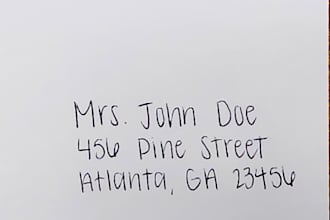 Mrs. John Doe
456 Pine Street
Atlanta, GA 23456